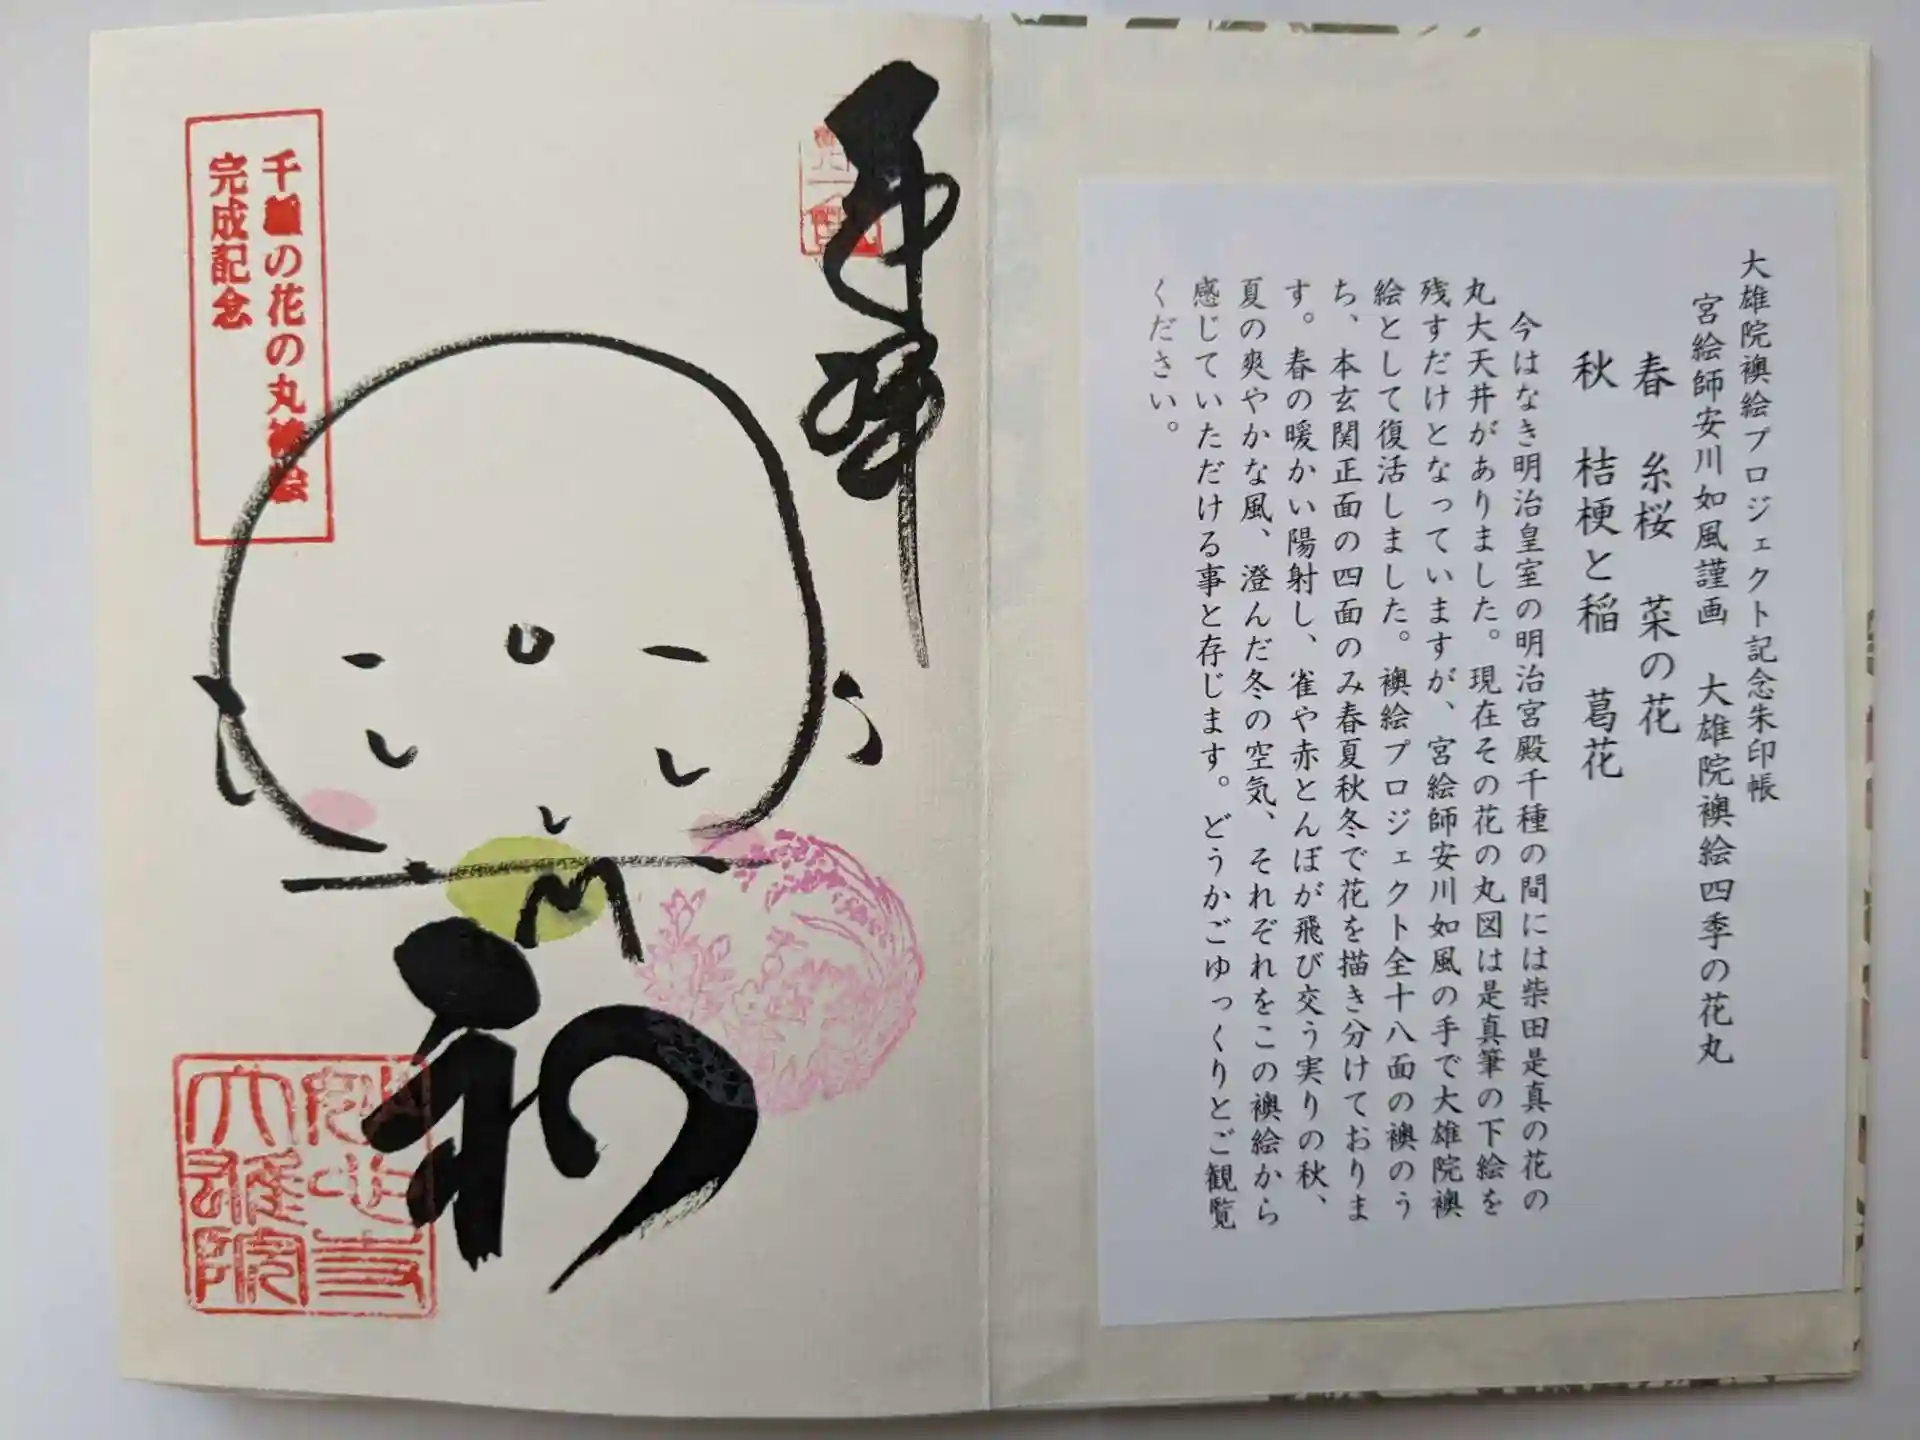 大雄院襖絵プロジェクト記念朱印帳
宮絵師安川如風謹画　大雄院襖絵四季の花丸
春　糸桜　菜の花
秋　桔梗と稲　葛花
今はなき明治皇室の明治宮殿千種の間には柴田是真の花の
丸大天井がありました。現在その花の丸図は是真筆の下絵を
残すだけとなっていますが、宮絵師安川如風の手で大雄院襖
絵として復活しました。襖絵プロジェクト全十八面の襖のう
ち、本玄関正面の四面のみ春夏秋冬で花を描き分けておりま
す。春の暖かい陽射し、雀や赤とんぼが飛び交う実りの秋、
夏の爽やかな風、澄んだ冬の空気、それぞれをこの襖絵から
感じていただける事と存じます。どうかごゆっくりとご観覧
ください。
奉拝
千種の花の丸襖絵
完成記念
和
妙心寺
大雄院